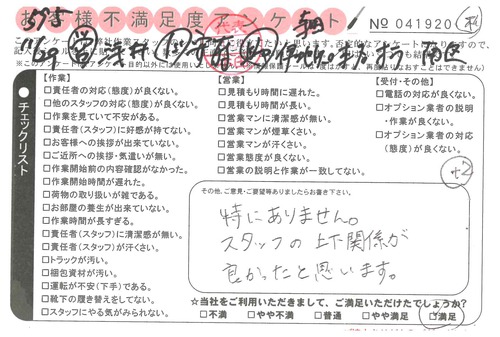 お客様不満足度アンケート
No 041920
チェックリスト
【作業】
□責任者の対応(態度)が良くない。
□他のスタッフの対応(態度)が良くない。
□作業を見ていて不安がある。
□責任者(スタッフ)に好感が持てない。
□お客様への挨拶が出来ていない。
□ご近所への挨拶・気遣いが無い。
□作業開始前の内容確認がなかった。
□作業開始時間が遅れた。
□荷物の取り扱いが雑である。
□お部屋の養生が出来ていない。
□作業時間が長すぎる。
□責任者(スタッフ)に清潔感が無い。
□責任者(スタッフ)が汗くさい。
□トラックが汚い。
□梱包資材が汚い。
□運転が不安(下手)である。
□靴下の履き替えをしてない。
□スタッフにやる気がみられない。
【営業】
□見積もり時間に遅れた。
□見積もり時間が長い。
□営業マンに清潔感が無い。
□営業マンが煙草くさい。
□営業マンが汗くさい。
□営業態度が良くない。
□営業の説明と作業が一致してない。
【受付・その他】
□電話の対応が良くない。
□オプション業者の説明
・作業が良くない。
□オプション業者の対応
(態度)が良くない。
その他、ご意見・ご要望等ありましたらお書き下さい。
特にありません。
スタッフの上下関係が
良かったと思います。
☆当社をご利用いただきまして、ご満足いただけたでしょうか?
□不満 □やや不満 □普通 □やや満足 □満足